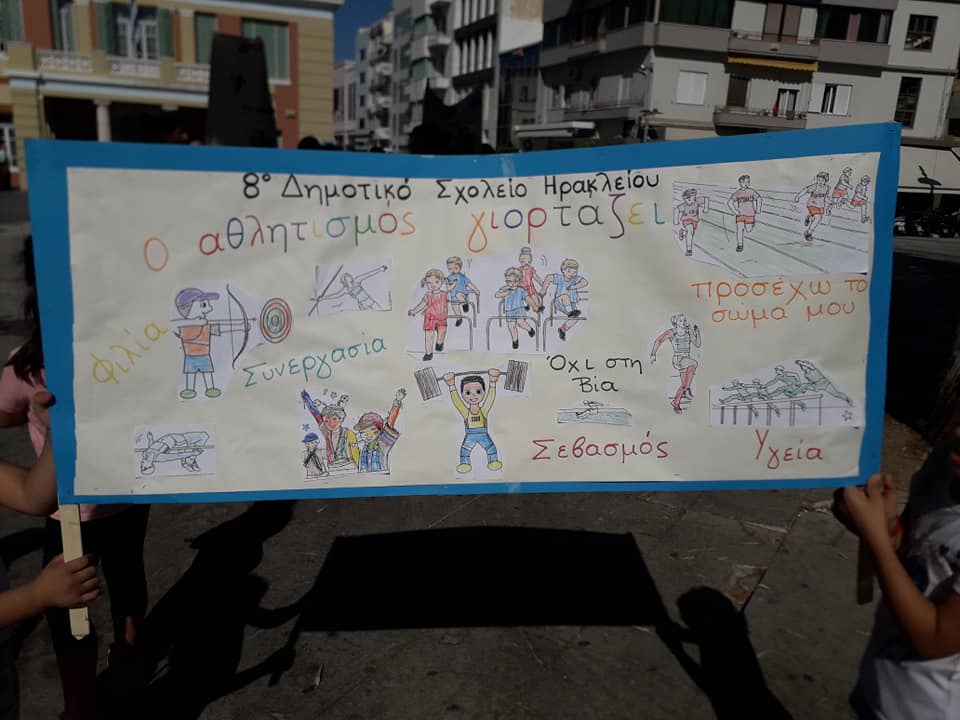 8ο Δημοτικό Σχολείο Ηρακλείου
Ο αθλητισμός γιορτάζει
προσέχω το
σώμα μου
Φιλία
Συνεργασία
Όχι στη
Βία
Σεβασμός
Υγεία